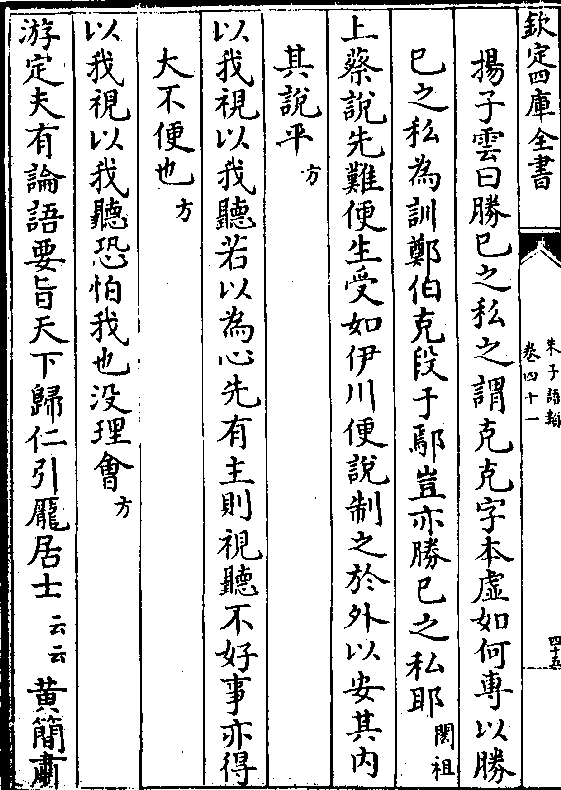 欽定四庫全書
朱子語類
卷四十一
四十五
揚子雲曰勝已之私之謂克克字本虛如何專以勝
已之私為訓鄭伯克段于鄢豈亦勝已之私耶閎祖
上蔡說先難便生受如伊川便說制之於外以安其內
其說平方
以我視以我聽若以為心先有主則視聽不好事亦得
大不便也方
以我視以我聽恐怕我也没理會方
游定夫有論語要旨天下歸仁引龎居士云云黄簡肅